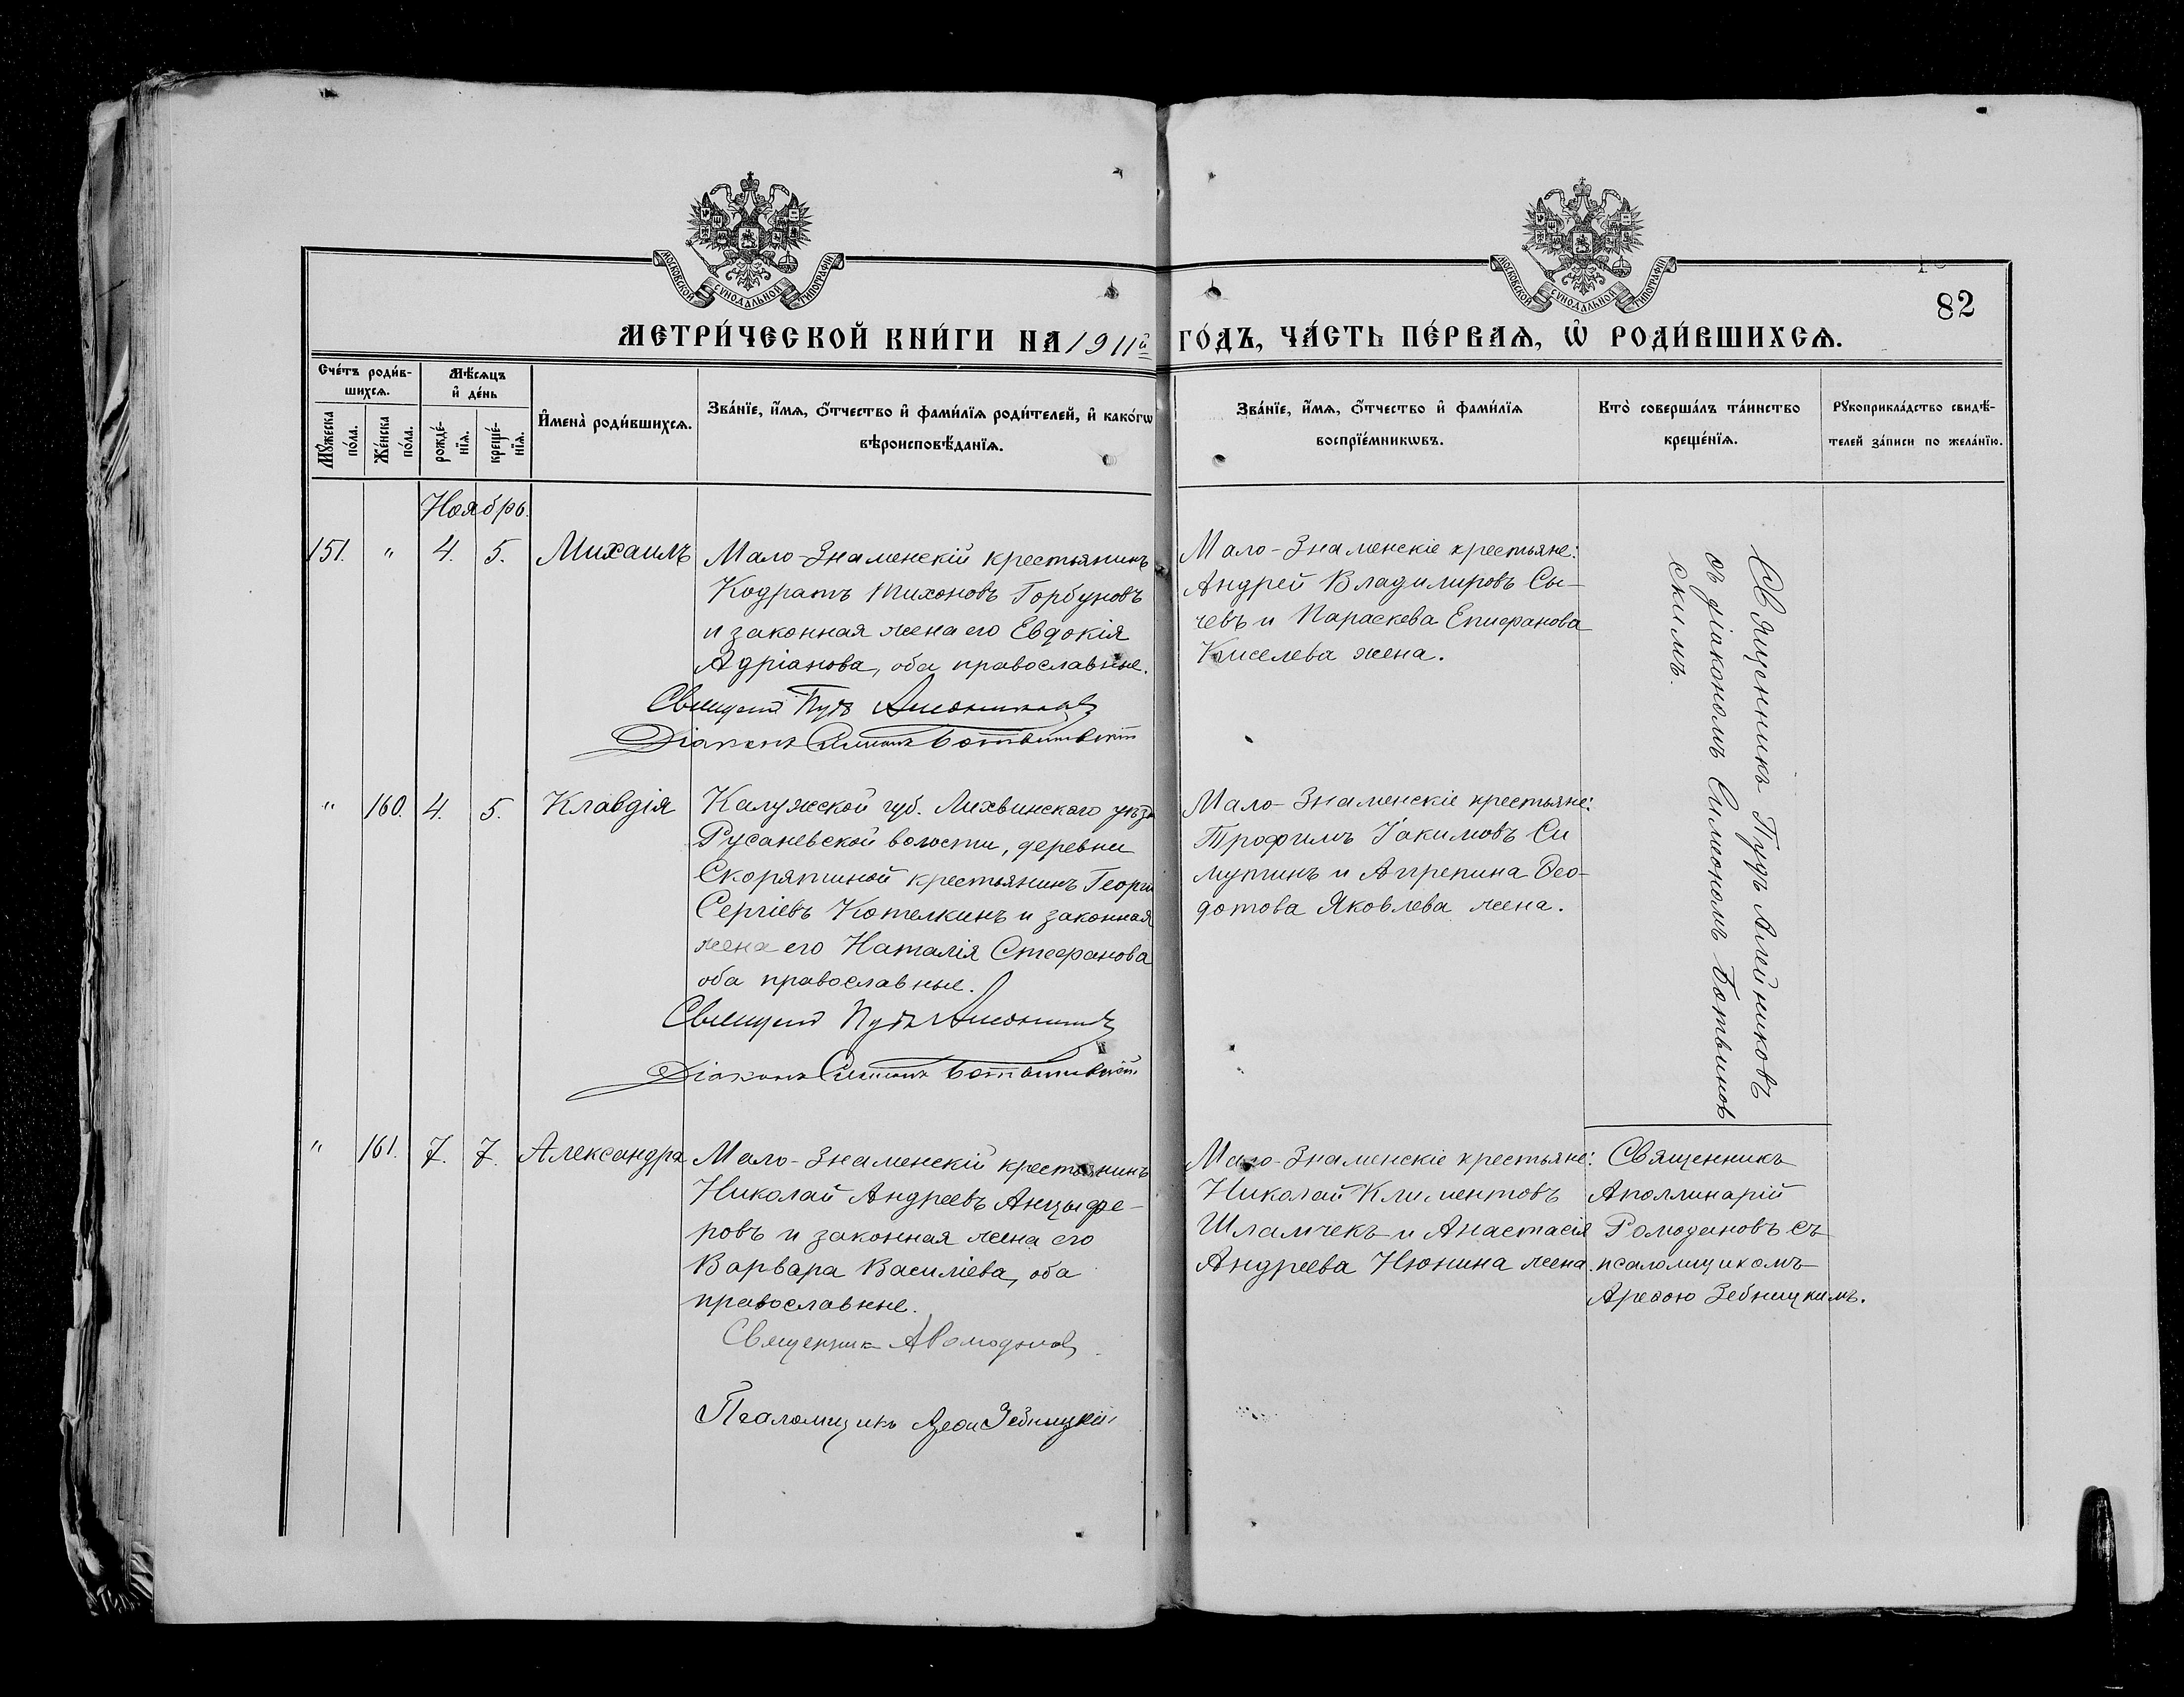 МОСКОВСКОЙ СѴНОДАЛЬНОЙ ТИПОГРАФІИ
МОСКОВСКОЙ СѴНОДАЛЬНОЙ ТИПОГРАФІИ
82
МЕТРИ́ЧЕСКОЙ КНИ́ГИ НА 1911й ГО́ДЪ, ЧА́СТЬ ПЕ́РВАѦ, Ѿ РОДИ́ВШИХСѦ.
Сче́тъ роди́в-
шихсѧ.
Мꙋ́жеска
по́ла.
Же́нска
по́ла.
Мѣ́сѧцъ
и҆ де́нь
рожде́-
нїѧ.
креще́-
нїѧ.
И҆мена̀ роди́вшихсѧ.
Зва́нїе, и҆́мѧ, ѻ҆́тчество и҆ фами́лїѧ роди́телей, и҆ како́гѡ
вѣроисповѣ́данїѧ.
Зва́нїе, и҆́мѧ, ѻ҆́тчество и҆ фами́лїѧ
воспрїе́мникѡвъ.
Кто̀ соверша́лъ та́инство
креще́нїѧ.
Рꙋкоприкла́дство свидѣ́-
телей за́писи по жела́нїю.
Ноябрь.
151. " 4. 5. Михаилъ
Мало-Знаменскій крестьянинъ
Кодратъ Тихоновъ Горбуновъ
и законная жена его Евдокія
Адріанова, оба православные.
Діаконъ Симонъ Ботвиновскій
Мало-Знаменскіе крестьяне:
Андрей Владимировъ Сы-
чевъ и Параскева Епифанова
Киселева жена.
Священникъ Пудъ Алейниковъ
съ діакономъ Симономъ Ботвинов
скимъ.
" 160. 4. 5. Клавдія
Калужской губ. Лихвинскаго уѣзд
Русаневской волости, деревни
Скорятиной крестьянинъ Георгій
Сергіевъ Котелкинъ и законная
жена его Наталія Стефанова
оба православные.
Діаконъ Симонъ Ботвиновскій
Мало-Знаменскіе крестьяне:
Трофимъ Іакимовъ Си
мутинъ и Агрепина Ѳео-
дотова Яковлева жена.
" 161. 7. 7. Александра
Мало-Знаменскій крестьянинъ
Николай Андреевъ Анцыфе-
ровъ и законная жена его
Варвара Василіева, оба
православные.
Священникъ А Ромодановъ
Псаломщикъ Зебницкій
Мало-Знаменскіе крестьяне:
Николай Климентовъ
Шламчекъ и Анастасія
Андреева Нюнина жена.
Священникъ
Аполлинарій
Ромодановъ съ
псаломщикомъ
Арефою Зебницкимъ.